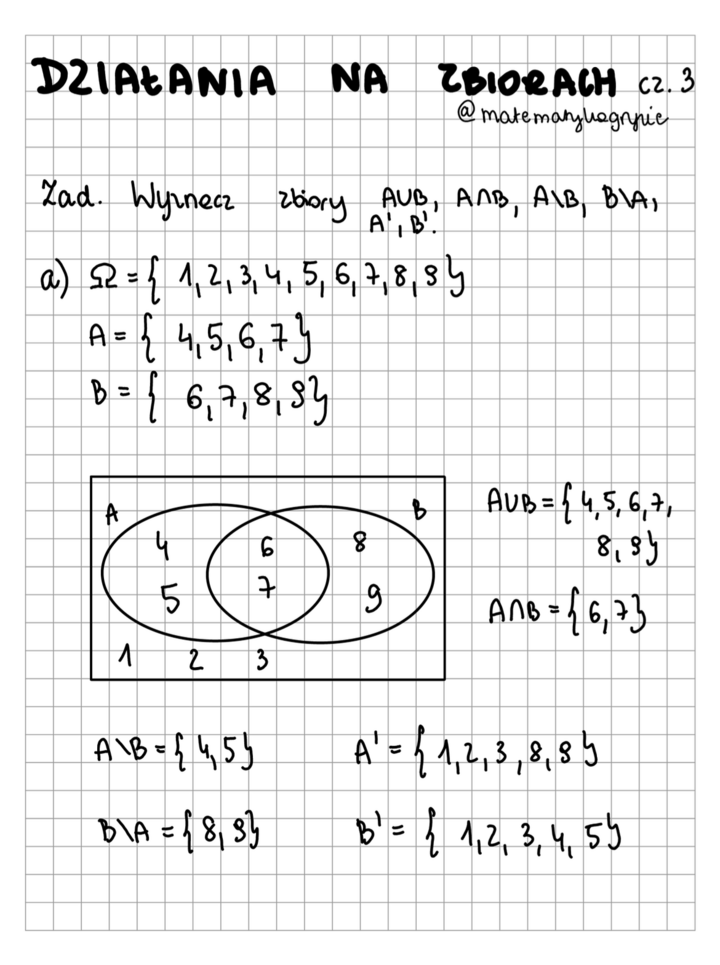 DZIAŁANIA NA ZBIORACH cz. 3
@matematykagrypie
Zad. Wyznacz zbiory A∪B, A∩B, A\B, B\A,
A', B'.
a) Ω = { 1, 2, 3, 4, 5, 6, 7, 8, 9 }
A = { 4, 5, 6, 7 }
B = { 6, 7, 8, 9 }
A B
4 6 8
5 7 9
1 2 3
A∪B = { 4, 5, 6, 7,
8, 9 }
A∩B = { 6, 7 }
A\B = { 4, 5 }
A' = { 1, 2, 3, 8, 9 }
B\A = { 8, 9 }
B' = { 1, 2, 3, 4, 5 }